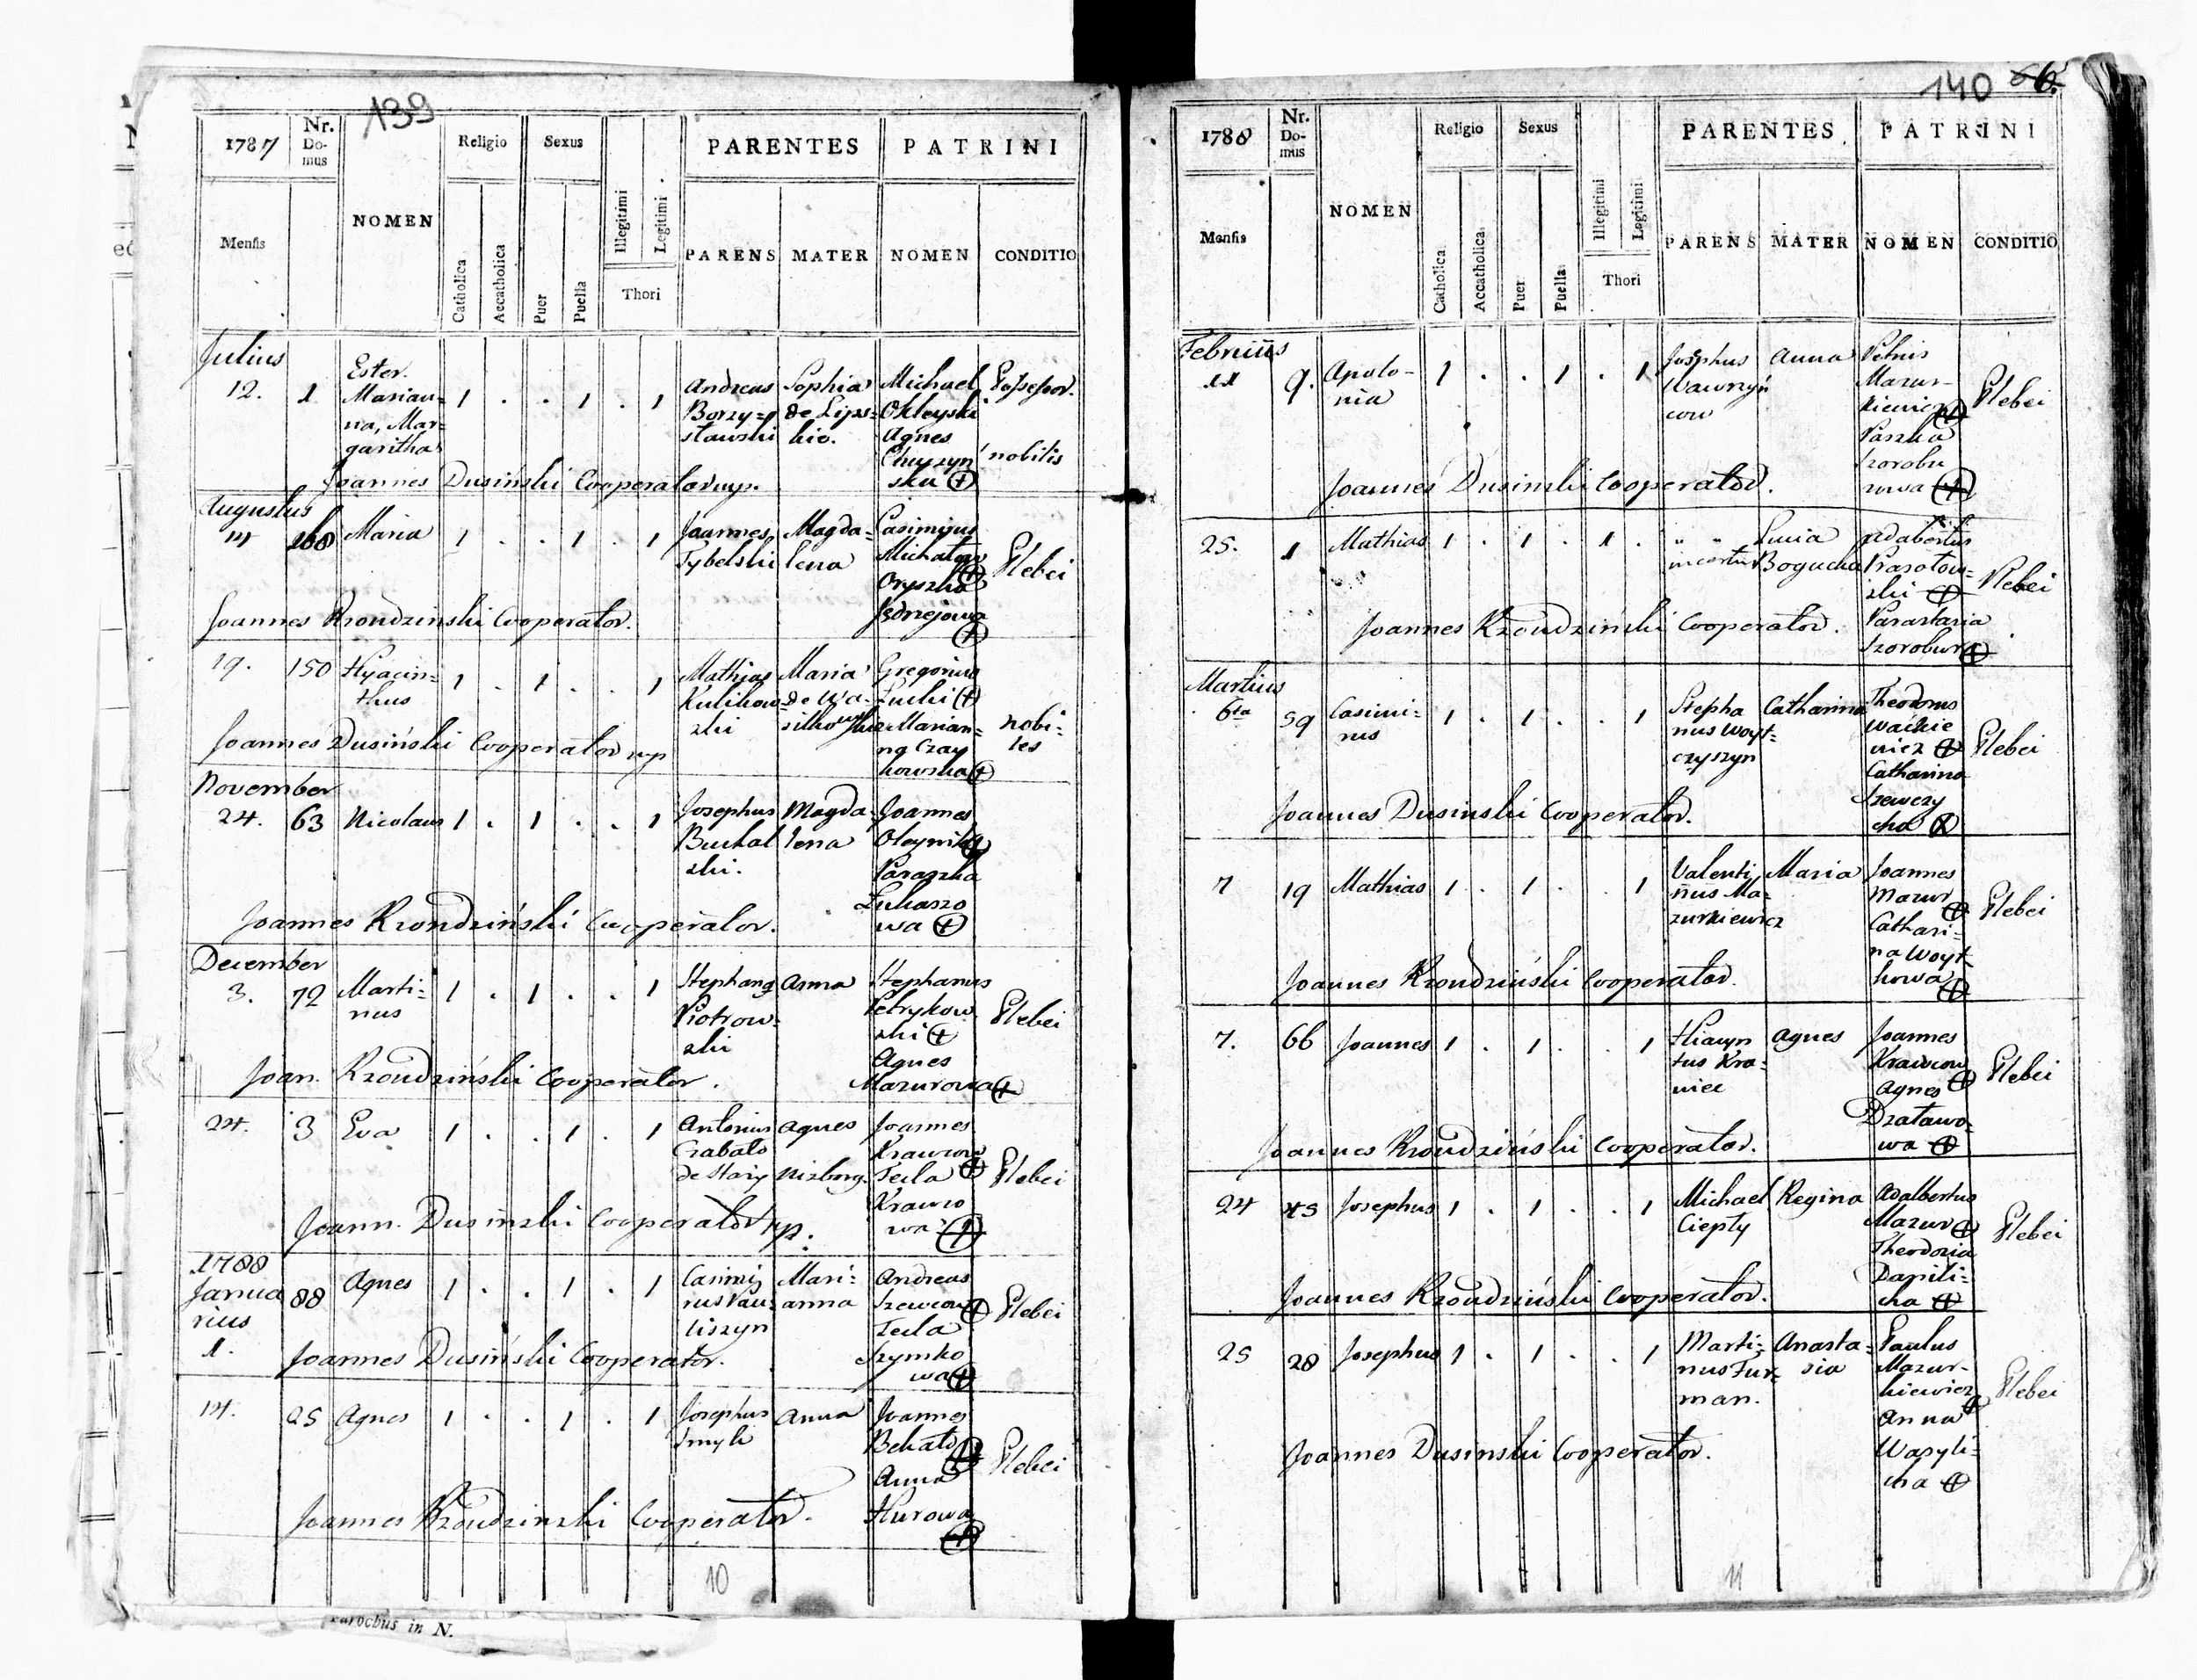 139
1787
Nr. Domus
NOMEN
Religio
Sexus
PARENTES
PATRINI
Mensis
Catholica
Accatholica
Puer
Puella
Illegitimi
Legitimi
Thori
PARENS
MATER
NOMEN
CONDITIO
Julius
12. 1 Ester. Marianna, Margaritha 1 . . 1 . 1 Andreas Borzysławski Sophia de Lipskie. Michael Okleyski Possessor.
Agnes nobilis
Joannes Dusiński Cooperator mp.
Augustus
Maria 1 . . 1 . 1 Joannes Tybelski Magdalena Casimirus
Oryszka Plebei
Joannes Krondzinski Cooperator.
19. 150 Hyacinthus 1 . 1 . . 1 Mathias Kulikowski Maria Gregorius
Marianna Czaykowska nobiles
Joannes Dusiński Cooperator mp
November
24. 63 Nicolaus 1 . 1 . . 1 Josephus Buchalski. Magdalena Joannes Oleynik
Paraszka Lukaszowa
Joannes Krondziński Cooperator.
December
3. 72 Martinus 1 . 1 . . 1 Stephanus Piotrowski Anna Stephanus Petrykowski
Agnes Mazurowa Plebei
Joan. Krondziński Cooperator.
24. 3 Eva 1 . . 1 . 1 Antonius Agnes Joannes Krawcow
Tecla Krawcowa Plebei
Joann. Dusinski Cooperator mp.
1788
Januarius
1. 88 Agnes 1 . . 1 . 1 Casimirus Pauliszyn Marianna Andreas Szewcow
Tecla Szymkowa Plebei
Joannes Dusiński Cooperator.
14. 25 Agnes 1 . . 1 . 1 Josephus Anna Joannes
Anna Hurowa Plebei
Joannes Krondzinski Cooperator.
10
Parochus in N.
140
1788
Nr. Domus
NOMEN
Religio
Sexus
PARENTES
PATRINI
Mensis
Catholica
Accatholica
Puer
Puella
Illegitimi
Legitimi
Thori
PARENS
MATER
NOMEN
CONDITIO
9. Apolonia 1 . . 1 . 1 Josephus Anna Petrus Mazurkiewicz
Paszka Plebei
Joannes Dusinski Cooperator.
25. 1 Mathias 1 . 1 . 1 . incertus Lucia Bogucka
Plebei
Joannes Krondziński Cooperator.
Martius
6ta 59 Casimirus 1 . 1 . . 1 Stephanus Woytczyszyn Catharina Theodorus
Catharina Szewczycha Plebei
Joannes Dusinski Cooperator.
7 19 Mathias 1 . 1 . . 1 Valentinus Mazurkiewicz Maria Joannes Mazur
Catharina Woytkowa Plebei
Joannes Krondziński Cooperator.
7. 66 Joannes 1 . 1 . . 1 Hiacyntus Krawiec Agnes Joannes Krawcow
Agnes Plebei
Joannes Krondziński Cooperator.
24 Josephus 1 . 1 . . 1 Michael Ciepły Regina Adalbertus Mazur
Theodozia Danilicha Plebei
Joannes Krondziński Cooperator.
25 28 Josephus 1 . 1 . . 1 Martinus Furman. Anastasia Paulus Mazurkiewicz
Anna Wasylicha Plebei
Joannes Dusinski Cooperator.
11